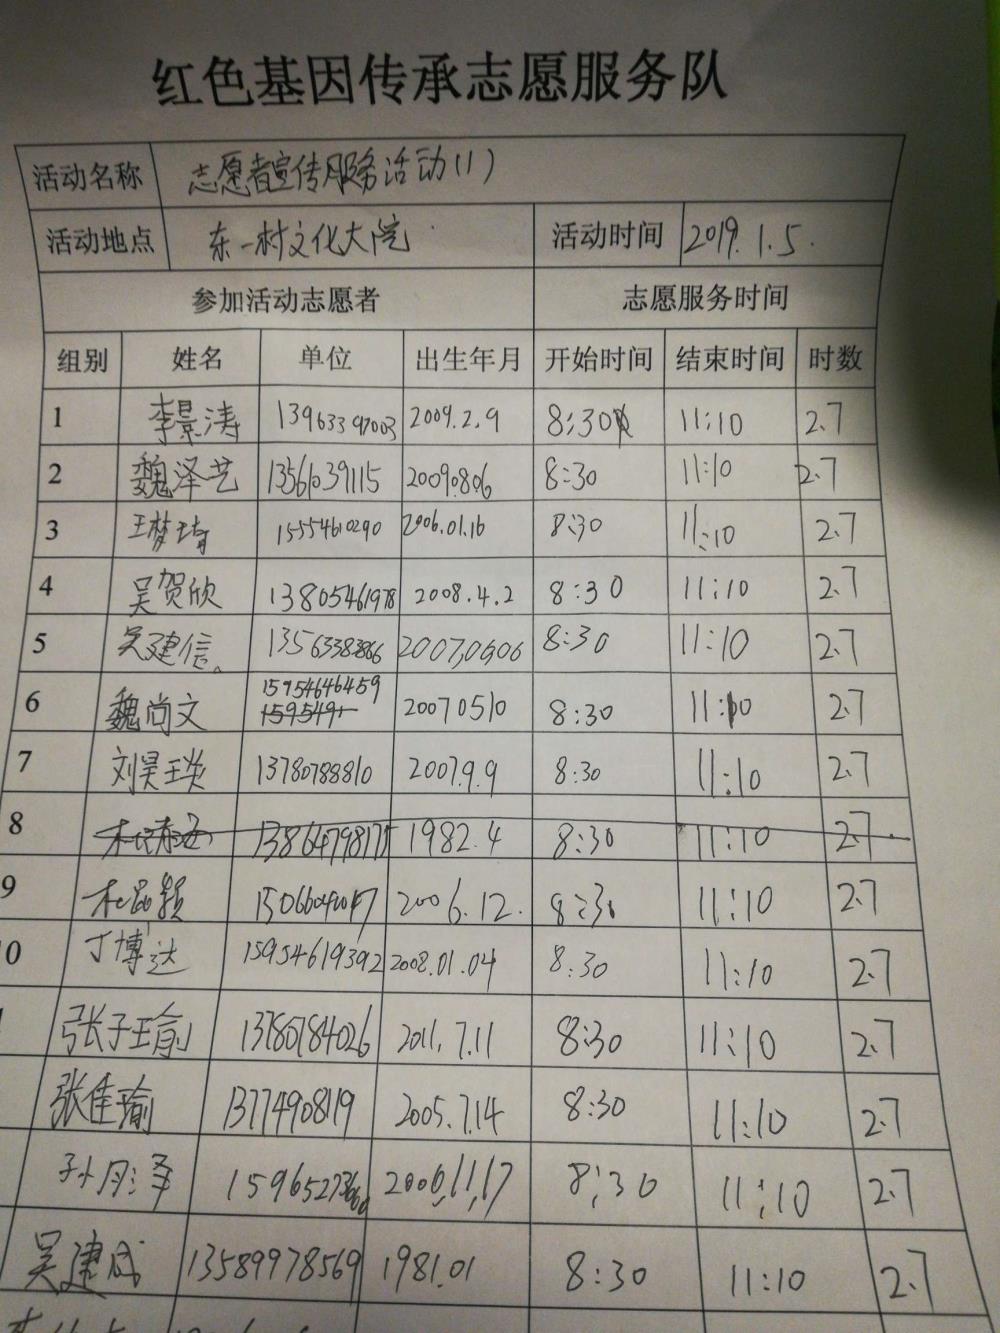 红色基因传承志愿服务队
活动名称 志愿者宣传服务活动(1)
活动地点 东一村文化大院 活动时间 2019.1.5.
参加活动志愿者 志愿服务时间
组别 姓名 单位 出生年月 开始时间 结束时间 时数
1 李景涛 13963397003 2009.2.9 8:30 11:10 2.7
2 魏泽艺 13561039115 2009.8.06 8:30 11:10 2.7
3 王梦琦 15554610290 2006.01.16 8:30 11:10 2.7
4 吴贺欣 13805461978 2008.4.2 8:30 11:10 2.7
5 吴建信 2007,0506 8:30 11:10 2.7
6 魏尚文 15954646459 20070510 8:30 11:10 2.7
7 刘昊琰 13780788810 2007.9.9 8:30 11:10 2.7
8 1982.4 8:30 11:10 2.7
9 杜品颖 2006.12. 8:30 11:10 2.7
0 丁博达 15954619392 2008.01.04 8:30 11:10 2.7
张子瑜 13780784026 2011.7.11 8:30 11:10 2.7
张佳瑜 13774908119 2005.7.14 8:30 11:10 2.7
孙月泽 2006,11,17 8:30 11:10 2.7
吴建成 13589978569 1981.01 8:30 11:10 2.7